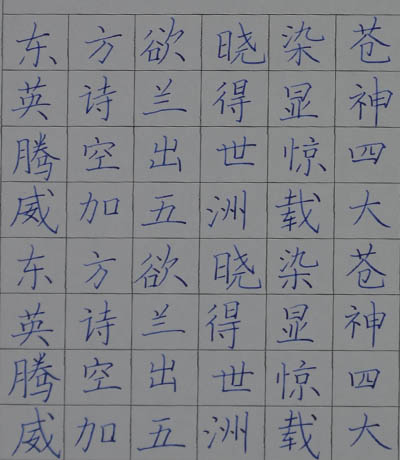 东方欲晓染苍
英诗兰得显神
腾空出世惊四
威加五洲载大
东方欲晓染苍
英诗兰得显神
腾空出世惊四
威加五洲载大